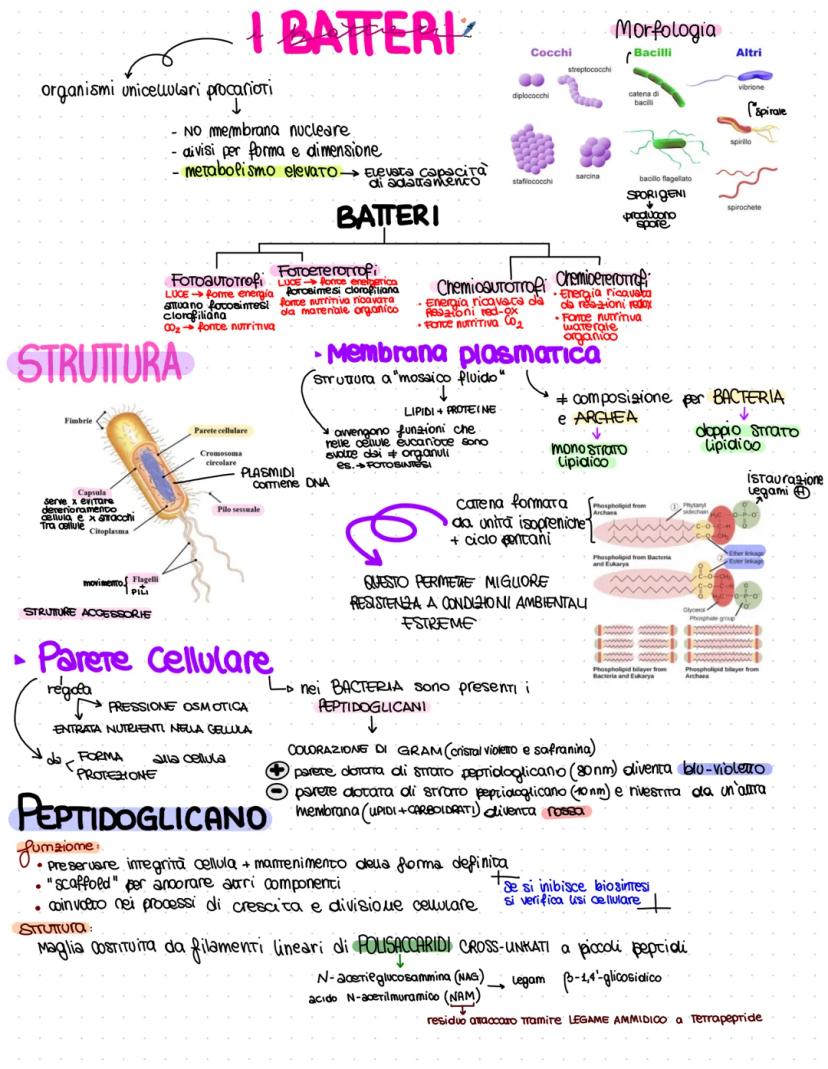 I BATTERI
i batteri
Morfologia
Cocchi
Bacilli
Altri
streptococchi
diplococchi
catena di
bacilli
vibrione
spirale
spirillo
stafilococchi
sarcina
bacillo flagellato
SPORIGENI
producono
spore
spirochete
organismi unicellulari procarioti
- NO membrana nucleare
- divisi per forma e dimensione
- metabolismo elevato → Elevata capacità
di adattamento
BATTERI
Fotoautotrofi
LUCE → fonte energia
attuano fotosintesi
clorofilliana
CO₂ → fonte nutritiva
Fotoeterotrofi
LUCE → fonte energetica
fotosintesi clorofilliana
fonte nutritiva ricavata
da materiale organico
Chemioautotrofi
• Energia ricavata da
Reazioni red-ox
• Fonte nutritiva CO₂
Chemioeterotrofi
• Energia ricavata
da reazioni redox
• Fonte nutritiva
materiale
organico
STRUTTURA
▸ Membrana plasmatica
struttura a "mosaico fluido"
LIPIDI + PROTEINE
avvengono funzioni che
nelle cellule eucariote sono
svolte dai ≠ organuli
es. → FOTOSINTESI
≠ composizione per BACTERIA
e ARCHEA
monostrato
lipidico
doppio strato
lipidico
Fimbrie
Parete cellulare
Cromosoma
circolare
PLASMIDI
contiene DNA
Capsula
serve x evitare
deterioramento
cellula e x attacchi
tra cellule
Pilo sessuale
Citoplasma
movimento
Flagelli
+
PILI
STRUTTURE ACCESSORIE
catena formata
da unità isopreniche
+ ciclo pentani
QUESTO PERMETTE MIGLIORE
RESISTENZA A CONDIZIONI AMBIENTALI
ESTREME
istaurazione
legami H
Phospholipid from
Archaea
1 Phytanyl
sidechain
Ether linkage
2
Ester linkage
Phospholipid from Bacteria
and Eukarya
Glycerol
Phosphate group
Phospholipid bilayer from
Bacteria and Eukarya
Phospholipid bilayer from
Archaea
▸ Parete Cellulare
regola
PRESSIONE OSMOTICA
ENTRATA NUTRIENTI NELLA CELLULA
da
FORMA
PROTEZIONE
alla cellula
nei BACTERIA sono presenti i
PEPTIDOGLICANI
COLORAZIONE DI GRAM (cristal violetto e safranina)
+ parete dotata di strato peptidoglicano (80nm) diventa blu-violetto
- parete dotata di strato peptidoglicano (10nm) e rivestita da un'altra
membrana (LIPIDI + CARBOIDRATI) diventa rossa
PEPTIDOGLICANO
funzione:
• preservare integrità cellula + mantenimento della forma definita
• "scaffold" per ancorare altri componenti
• coinvolto nei processi di crescita e divisione cellulare
se si inibisce biosintesi
si verifica lisi cellulare
struttura:
Maglia costituita da filamenti lineari di POLISACCARIDI CROSS-LINKATI a piccoli peptidi
N-acetilglucosammina (NAG)
acido N-acetilmuramico (NAM)
→ legam β-1,4'-glicosidico
residuo attaccato tramite LEGAME AMMIDICO a Tetrapeptide